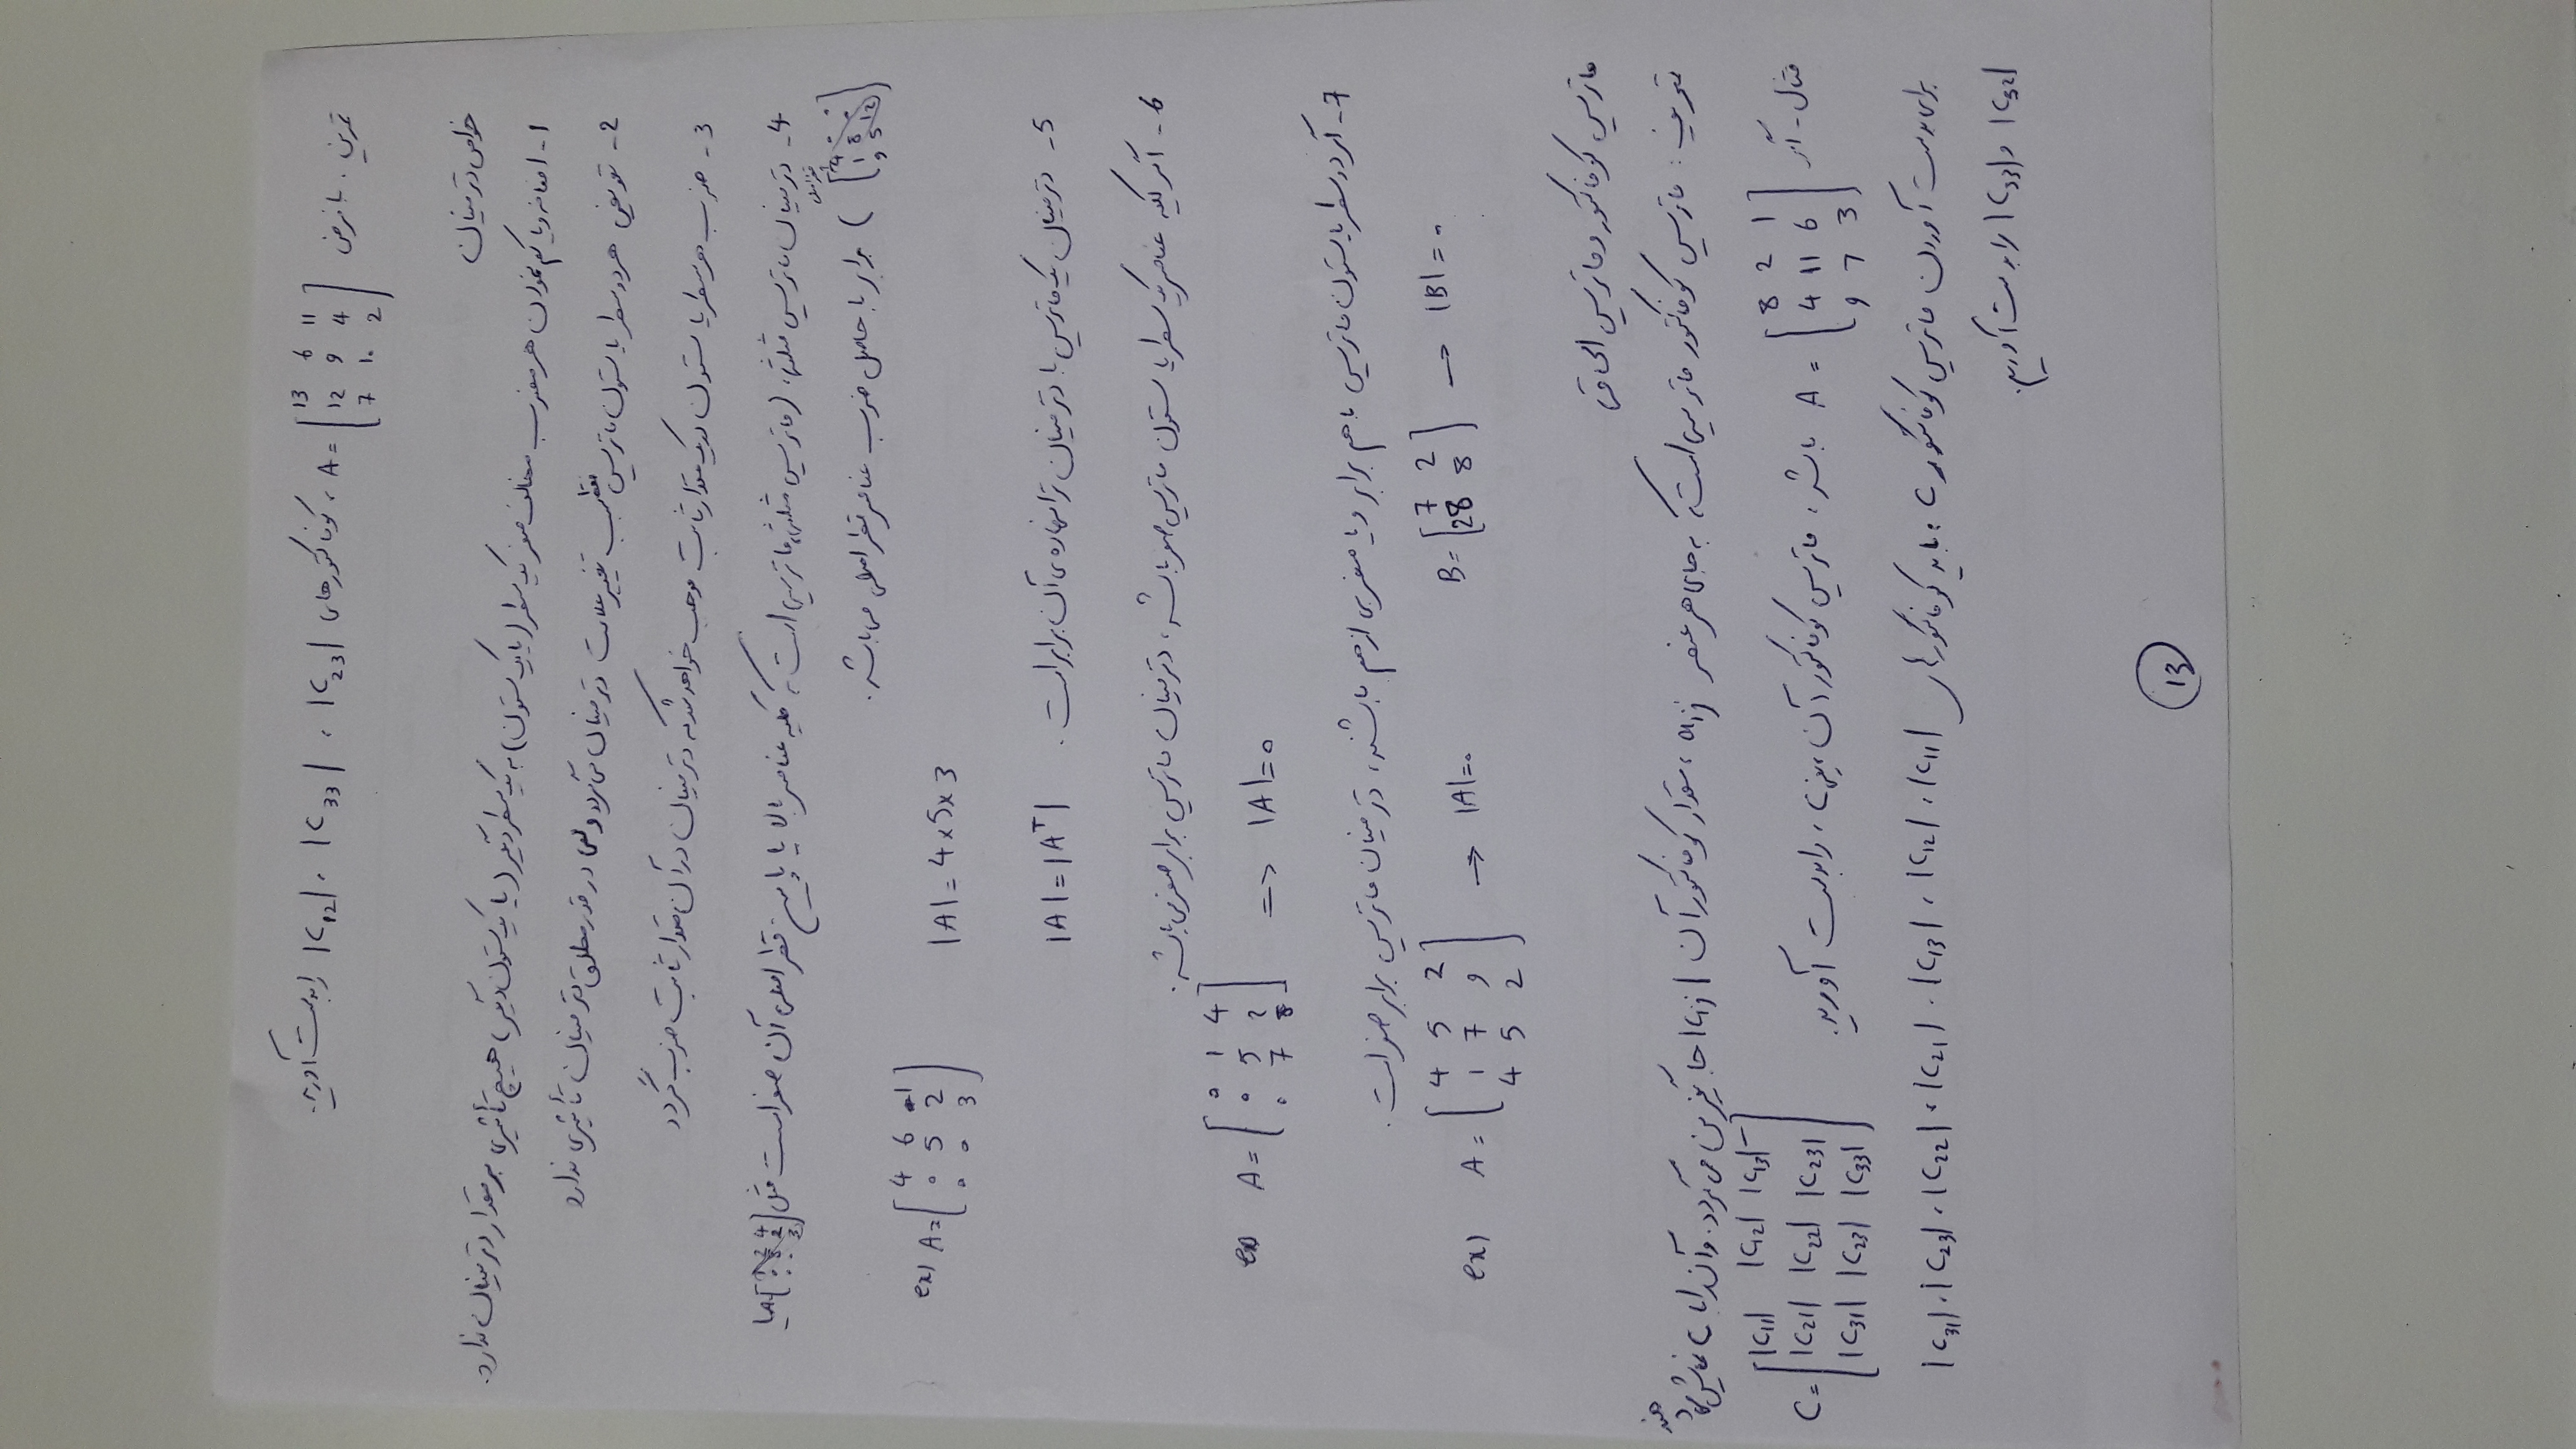 تمرین. با فرض A = [13 6 11 / 12 9 4 / 7 10 2] ، کوفاکتورهای |C12| ، |C33| ، |C23| را بدست آورید.
خواص دترمینان
1- اضافه و یا کم نمودن هر مضرب مخالف صفر یک سطر (یا یک ستون) به یک سطر دیگر (یا یک ستون دیگر) هیچ تأثیری بر مقدار دترمینان ندارد.
2- تعویض هر دو سطر یا ستون ماتریس فقط سبب تغییر علامت دترمینان می‌گردد ولی در قدر مطلق دترمینان تأثیری ندارد
3- ضرب هر سطر یا ستون در یک مقدار ثابت موجب خواهد شد که دترمینان در آن مقدار ثابت ضرب گردد
4- دترمینان ماتریس مثلثی (ماتریس مثلثی، ماتریسی است که کلیه عناصر بالا یا پایین قطر اصلی آن صفر است مثل
) برابر با حاصل ضرب عناصر قطر اصلی می‌باشد.
ex) A = [4 6 1 / 0 5 2 / 0 0 3] |A| = 4x5x3
5- دترمینان یک ماتریس با دترمینان ترانهاده‌ی آن برابر است. |A| = |Aᵀ|
6- اگر کلیه عناصر یک سطر یا ستون ماتریس صفر باشد، دترمینان ماتریس برابر صفر می‌باشد.
ex) A = [0 1 4 / 0 5 2 / 0 7 8] => |A| = 0
7- اگر دو سطر یا ستون ماتریس با هم برابر و یا مضربی از هم باشند، دترمینان ماتریس برابر صفر است.
ex) A = [4 5 2 / 1 7 9 / 4 5 2] → |A| = 0 B = [7 2 / 28 8] → |B| = 0
ماتریس کوفاکتور و ماتریس الحاقی
تعریف: ماتریس کوفاکتور ماتریسی است که به جای هر عنصر aij، مقدار کوفاکتور آن |Cij| جایگزین می‌گردد. و آن را با C نمایش می‌دهند
مثال- اگر A = [8 2 1 / 4 11 6 / 9 7 3] باشد، ماتریس کوفاکتور آن یعنی C، را بدست آورید. C = [|C11| |C12| |C13| / |C21| |C22| |C23| / |C31| |C23| |C33|]
برای بدست آوردن ماتریس کوفاکتور C، باید کوفاکتورهای |C11| ، |C12| ، |C13| ، |C21| ، |C22| ، |C23| ، |C31|
|C32| و |C33| را بدست آوریم.
13